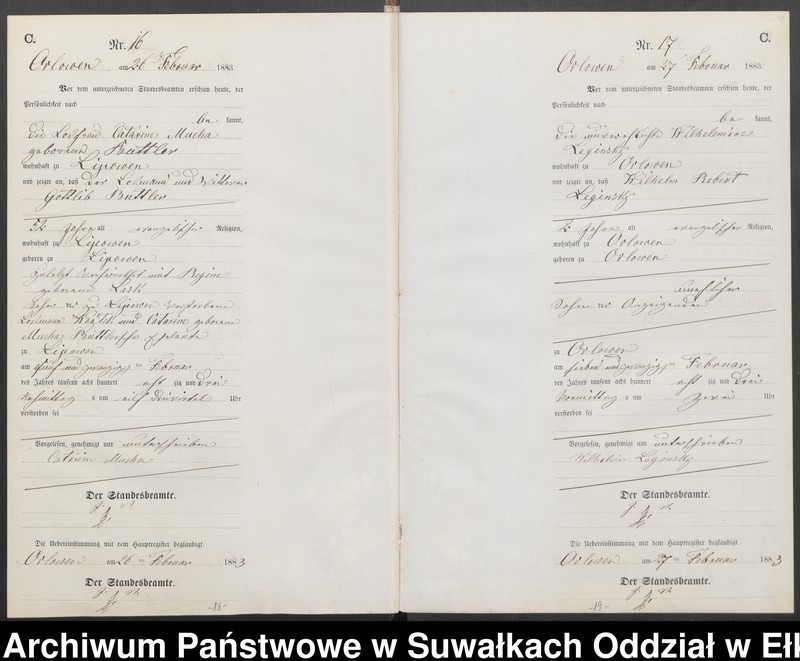 C.
Nr. 16
Orlowen am 26 Februar 1883.
Vor dem unterzeichneten Standesbeamten erschien heute, der
Persönlichkeit nach
be kannt,
die Losfrau Catarine Mucha
geborene Buttler
wohnhaft zu Lipowen
und zeigte an, daß der Losmann und Wittwer
Gottlib Buttler
52 Jahre alt evangelischer Religion,
wohnhaft zu Lipowen
geboren zu Lipowen
zuletzt verheirathet mit Regine
geborene
Sohn der zu Lipowen verstorbenen
Losmann und Catarine geborene
Mucha Buttler
zu Lipowen
am fünf und zwanzigsten Februar
des Jahres tausend acht hundert acht zig und drei
Nachmittag s um elf dreiviertel Uhr
verstorben sei
Vorgelesen, genehmigt und unterschrieben
Catarine Mucha
Der Standesbeamte.
Die Uebereinstimmung mit dem Hauptregister beglaubigt.
Orlowen am 26 Februar 1883
Der Standesbeamte.
-18-
C.
Nr. 17
Orlowen am 27 Februar 1883.
Vor dem unterzeichneten Standesbeamten erschien heute, der
Persönlichkeit nach
be kannt,
die unverehelichte Wilhelmine
Leginsky
wohnhaft zu Orlowen
und zeigte an, daß Wilhelm Robert
Leginsky
2 Jahre alt evangelischer Religion,
wohnhaft zu Orlowen
geboren zu Orlowen
unehelicher
Sohn der Anzeigenden
zu Orlowen
am sieben und zwanzigsten Februar
des Jahres tausend acht hundert acht zig und drei
Vormittag s um zwei Uhr
verstorben sei
Vorgelesen, genehmigt und unterschrieben
Wilhelmine Leginsky
Der Standesbeamte.
Die Uebereinstimmung mit dem Hauptregister beglaubigt.
Orlowen am 27 Februar 1883
Der Standesbeamte.
-19-
Archiwum Państwowe w Suwałkach Oddział w Ełk